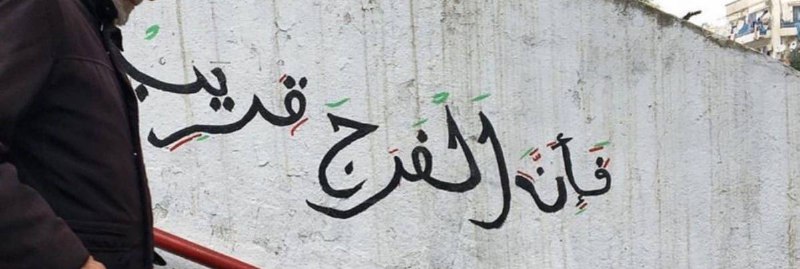 فَإِنَّهُ الفَرَجَ قَرِيب